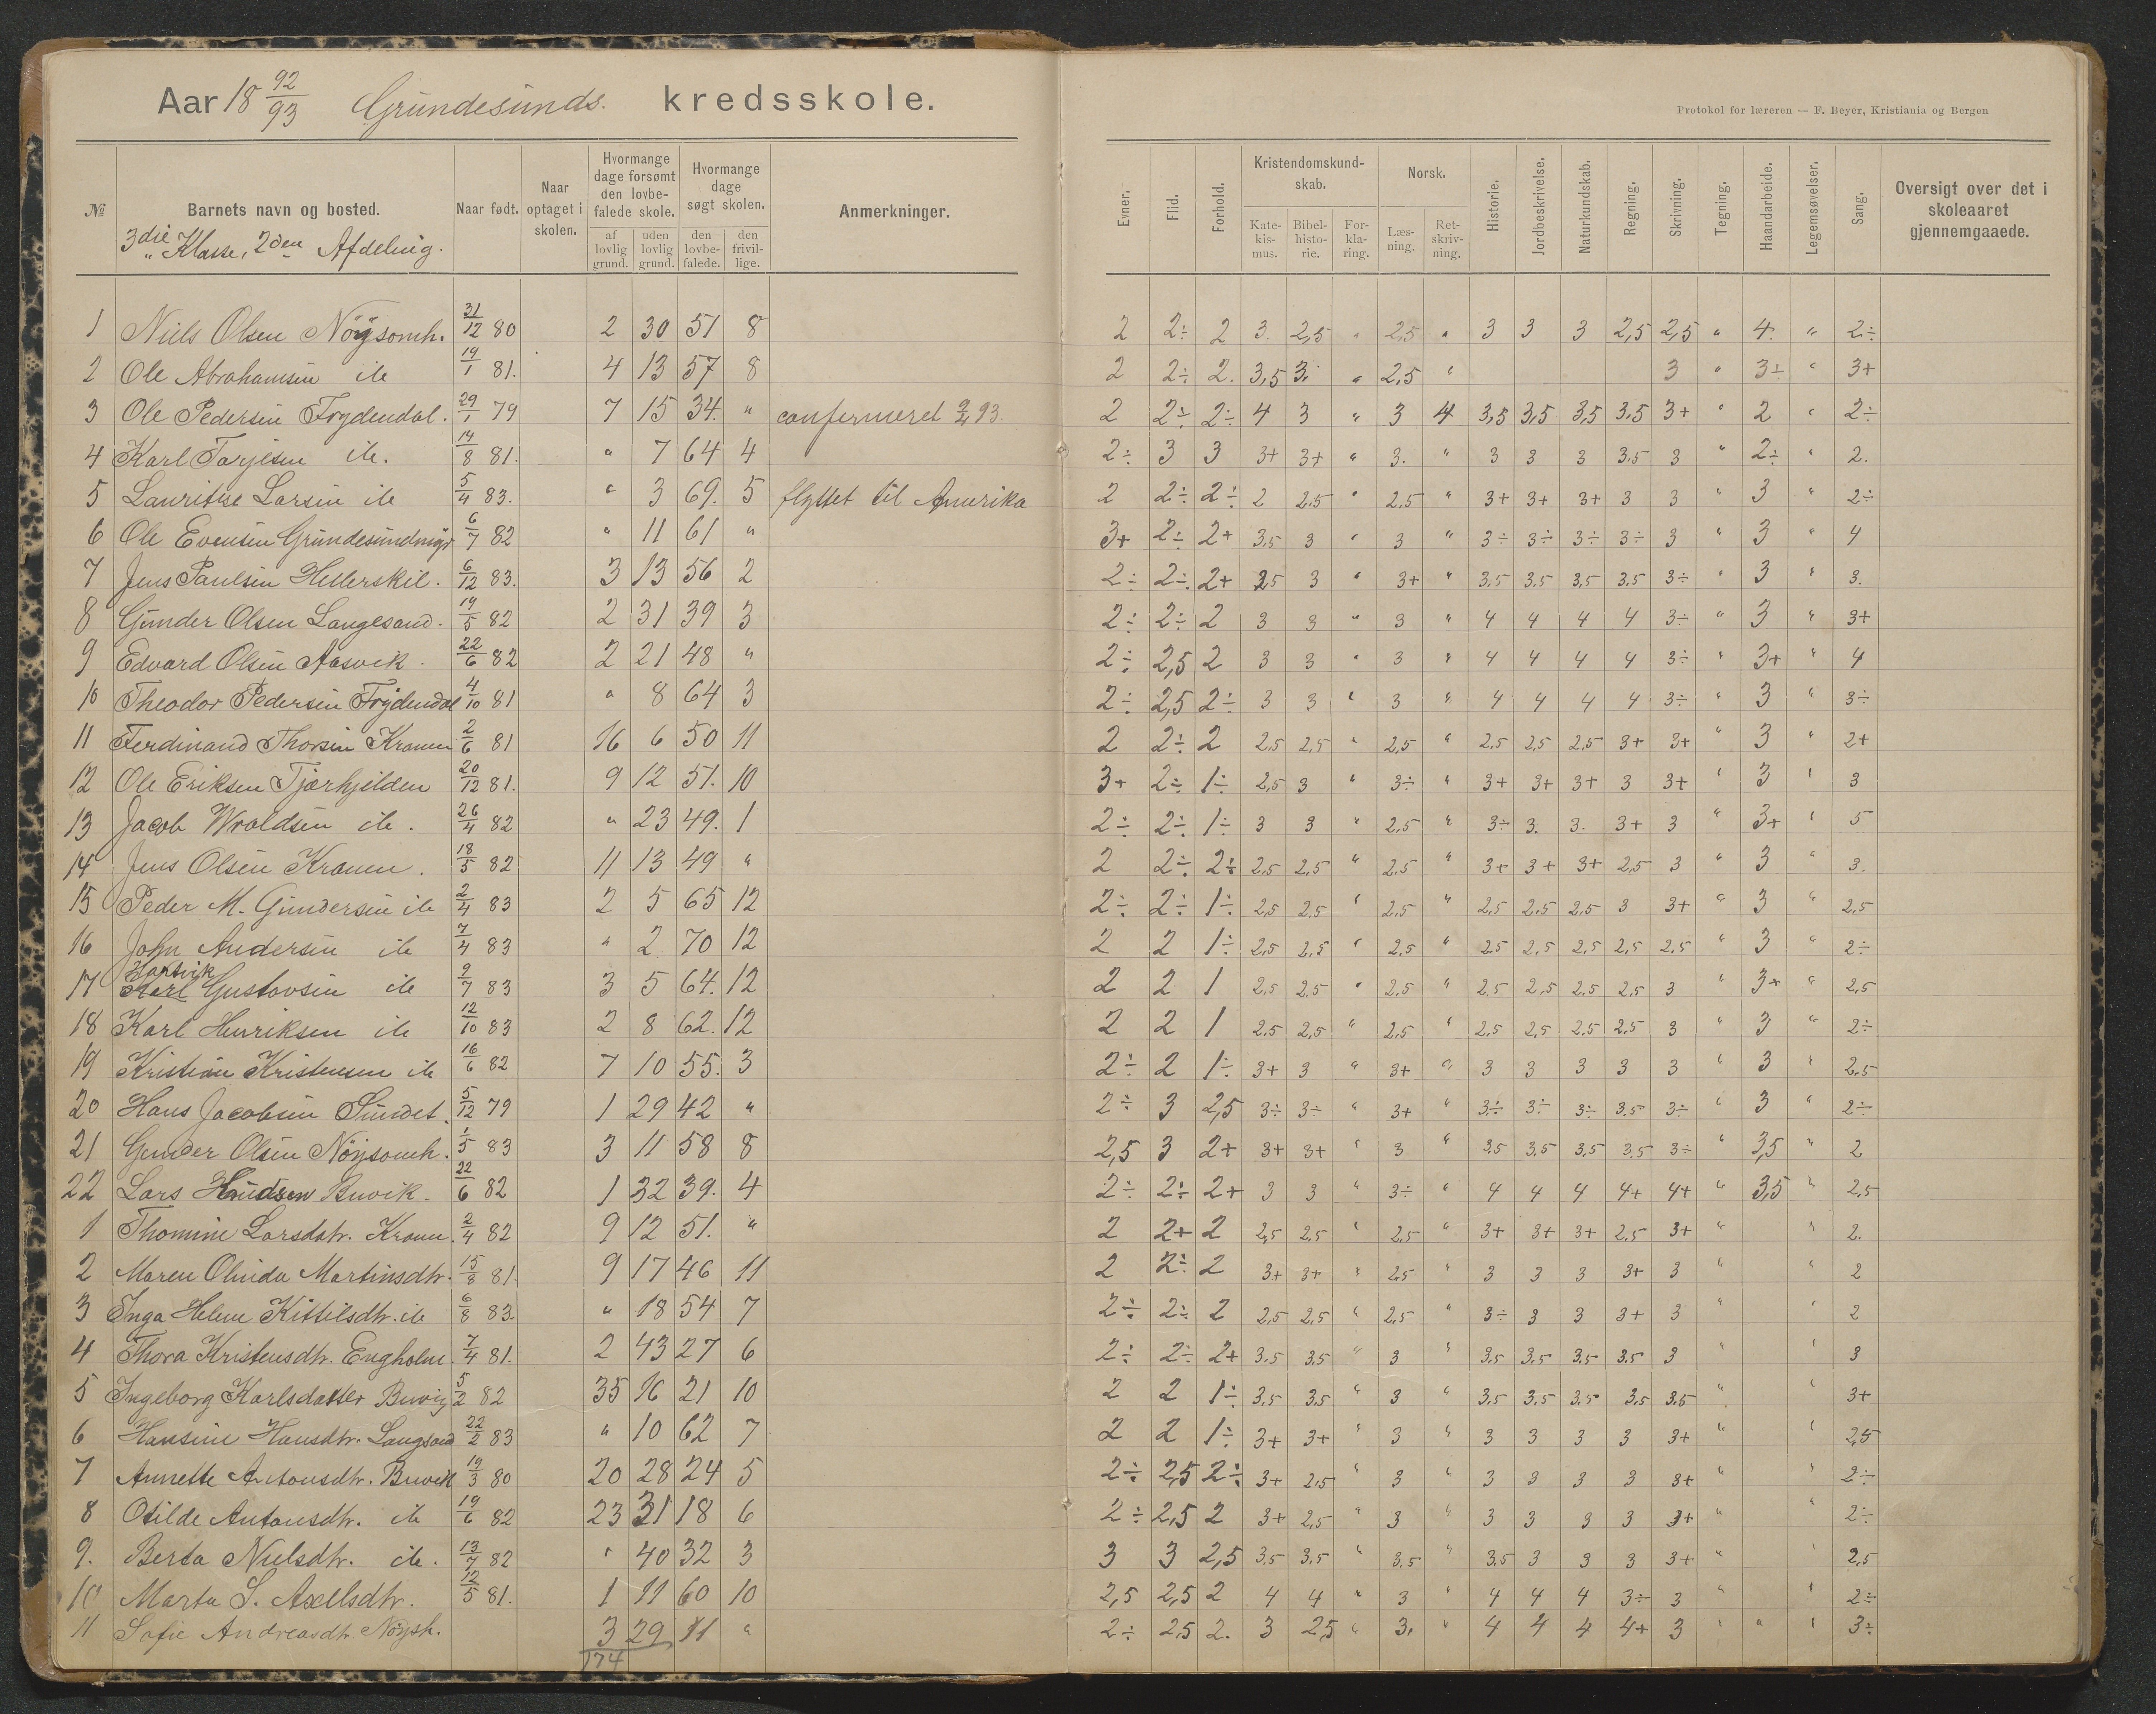 Aar 18 92/93 Grundesunds. kredsskole.
Protokol for læreren — F. Beyer, Kristiania og Bergen
№ Barnets navn og bosted. Naar født. Naar optaget i skolen. Hvormange dage forsømt den lovbefalede skole. af lovlig grund. uden lovlig grund. Hvormange dage søgt skolen. den lovbefalede. den frivillige. Anmerkninger. Evner. Flid. Forhold. Kristendomskundskab. Katekismus. Bibelhistorie. Forklaring. Norsk. Læsning. Retskrivning. Historie. Jordbeskrivelse. Naturkundskab. Regning. Skrivning. Tegning. Haandarbeide. Legemsøvelser. Sang. Oversigt over det i skoleaaret gjennemgaaede.
3die Klasse, 2den Afdeling.
1 Niels Olsen Nöÿsomh. 31/12 80 2 30 51 8 2 2÷ 2 3. 2,5 " 2,5 " 3 3 3 2,5 2,5 " 4. " 2÷
2 Ole Abrahamsen ib 19/1 81. 4 13 57 8 2 2÷ 2. 3,5 3. " 2,5 " 3 " 3÷ " 3+
3 Ole Pedersen Frydendal. 29/1 79 7 15 34. " confermeret 9/4 93. 2 2÷ 2÷ 4 3 " 3 4 3,5 3,5 3,5 3,5 3+ " 2 " 2÷
4 Karl Tarjesen ib. 14/8 81. " 7 64 4 2÷ 3 3 3+ 3+ " 3. " 3 3 3 3,5 3 " 2÷ " 2.
5 Lauritse Larsen ib 5/4 83. " 3 69. 5 flyttet til Amerika 2 2÷ 2÷ 2 2,5 " 2,5 " 3+ 3+ 3+ 3 3 " 3 " 2÷
6 Ole Evensen Grundesundmyr 6/7 82 " 11 61 " 3+ 2÷ 2+ 3,5 3 " 3 " 3÷ 3÷ 3÷ 3÷ 3 " 3 " 4
7 Jens Paulsen Hellerskil. 6/12 83. 3 13 56 2 2÷ 2÷ 2+ 2,5 3 " 3+ " 3,5 3,5 3,5 3,5 3÷ " 3 " 3.
8 Gunder Olsen Langesand. 19/5 82 2 31 39 3 2÷ 2÷ 2 3 3 " 3 " 4 4 4 4 3÷ " 3 " 3+
9 Edvard Olsen Aasvik. 22/6 82 2 21 48 " 2÷ 2,5 2 3 3 " 3 " 4 4 4 4 3÷ " 3+ " 4
10 Theodor Pedersen Frÿdendal 4/10 81 " 8 64 3 2÷ 2,5 2÷ 3 3 " 3 " 4 4 4 4 3÷ " 3 " 3÷
11 Ferdinand Thorsen Kranen 2/6 81 16 6 50 11 2 2÷ 2 2,5 2,5 " 2,5 " 2,5 2,5 2,5 3+ 3+ " 3 " 2+
12 Ole Eriksen Tjærkjilden 20/12 81. 9 12 51. 10 3+ 2÷ 1÷ 2,5 3 " 3÷ " 3+ 3+ 3+ 3 3+ " 3 " 3
13 Jacob Wroldsen ib. 26/4 82 " 23 49. 1 2÷ 2÷ 1÷ 3 3 " 2,5 " 3÷ 3. 3. 3+ 3 " 3+ " 5
14 Jens Olsen Kranen. 18/5 82 11 13 49 " 2 2÷ 2÷ 2,5 2,5 " 2,5 " 3+ 3+ 3+ 2,5 3 " 3 " 3.
15 Peder M. Gundersen ib 2/4 83 2 5 65 12 2÷ 2÷ 1÷ 2,5 2,5 " 2,5 " 2,5 2,5 2,5 3 3+ " 3 " 2,5
16 John Andersen ib 7/4 83 " 2 70 12 2 2 1÷ 2,5 2,5 " 2,5 " 2,5 2,5 2,5 2,5 2,5 " 3 " 2÷
Hartvik
17 Karl Gustavsen ib 9/7 83 3 5 64. 12 2 2 1 2,5 2,5 " 2,5 " 2,5 2,5 2,5 2,5 3 " 3+ " 2,5
18 Karl Henriksen ib 12/10 83 2 8 62. 12 2 2 1 2,5 2,5 " 2,5 " 2,5 2,5 2,5 2,5 3 " 3 " 2÷
19 Kristian Kristensen ib 16/6 82 7 10 55. 3 2÷ 2 1÷ 3+ 3 " 3+ " 3 3 3 3 3 " 3 " 2,5
20 Hans Jacobsen Sundet. 5/12 79 1 29 42 " 2÷ 3 2,5 3÷ 3÷ " 3+ " 3÷ 3÷ 3÷ 3,5 3÷ " 3 " 2÷
21 Gunder Olsen Nöÿsomh. 1/5 83 3 11 58 8 2,5 3 2+ 3+ 3+ " 3 " 3,5 3,5 3,5 3,5 3÷ " 3,5 " 2
22 Lars Knudsen Buvik. 22/6 82 1 32 39. 4 2÷ 2÷ 2+ 3 3 " 3÷ " 4 4 4 4+ 4+ " 3,5 " 2,5
1 Thomine Larsdatr. Kranen. 2/4 82 9 12 51. " 2 2+ 2 2,5 2,5 " 2,5 " 3+ 3+ 3+ 2,5 3+ " " 2.
2 Maren Olinda Martinsdtr. 15/8 81. 9 17 46 11 2 2÷ 2 3+ 3+ " 2,5 " 3 3 3 3+ 3 " " 2
3 Inga Helene Kittilsdtr. ib 6/8 83. " 18 54 7 2÷ 2÷ 2 2,5 2,5 " 2,5 " 3÷ 3 3 3+ 3 " " 2
4 Thora Kristensdtr. Engholm. 7/4 81. 2 43 27 6 2÷ 2÷ 2+ 3,5 3,5 " 3 " 3,5 3,5 3,5 3,5 3 " " 3
5 Ingeborg Karlsdatter Buvig 5/2 82 35 16 21 10 2 2 1÷ 3,5 3,5 " 3 " 3,5 3,5 3,5 3,5 3,5 " " 3+
6 Hansine Hansdtr. Langsand 22/2 83 " 10 62 7 2 2 1÷ 3+ 3+ " 3 " 3 3 3 3 3+ " 2,5
7 Annette Antonsdtr. Buvik 19/3 80 20 28 24 5 2÷ 2,5 2÷ 3+ 2,5 " 3 " 3 3 3 3 3+ " " 2÷
8 Otilde Antonsdtr. ib 19/6 82 23 31 18 6 2÷ 2,5 2 3+ 2,5 " 3 " 3 3 3 3 3+ " " 2÷
9. Berta Nielsdtr. ib. 13/7 82 " 40 32 3 3 3 2,5 3,5 3,5 " 3,5 " 3,5 3 3 3 3+ " 2,5
10 Marta S. Axellsdtr. 12/5 81. 1 11 60 10 2,5 2,5 2 4 4 " 3 " 4 4 4 3÷ 3 " " 2÷
11 Sofie Andreasdtr. Nöÿsh. 3 29 11 " 2÷ 2,5 2. 3 2,5 " 3. " 4 4 4 4+ 3 " " " 3÷
174